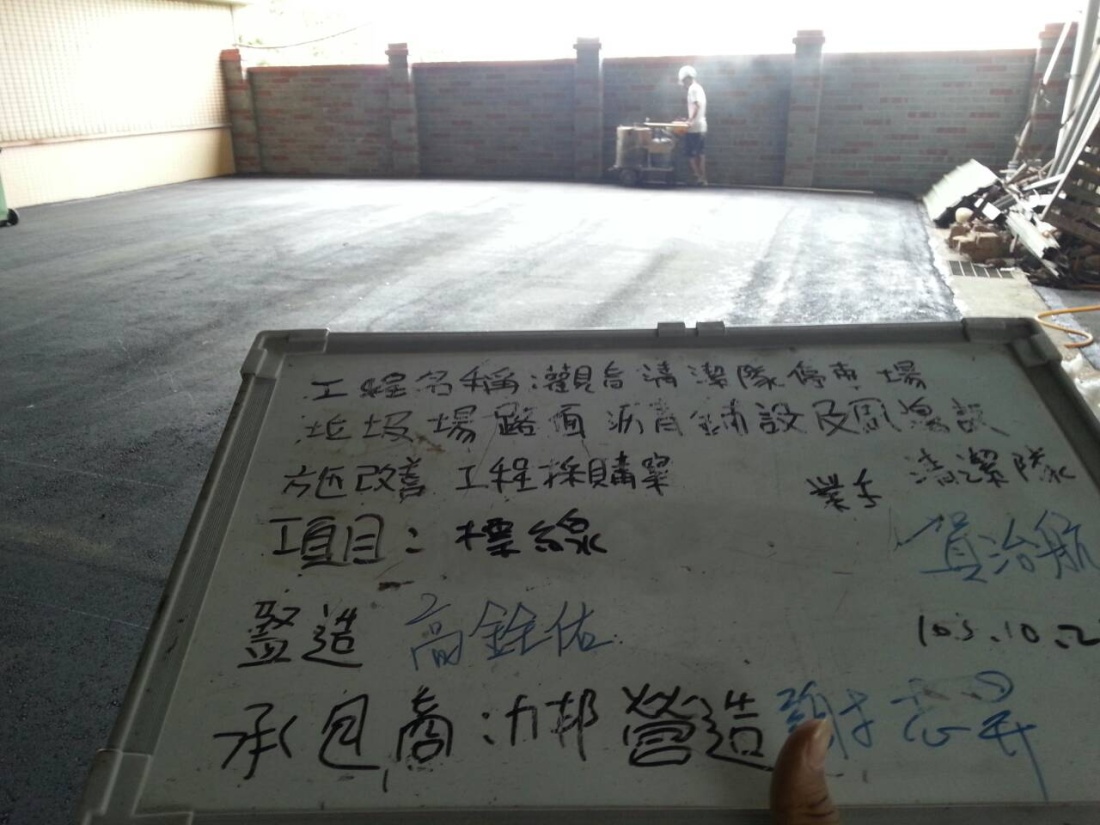 工程名稱:觀音清潔隊停車場
垃圾場路面瀝青鋪設及周邊設
施改善工程採購案
業主 清潔隊
項目:標線
黃治航
監造 高銓佑
105.10.2
承包商:力邦營造 謝